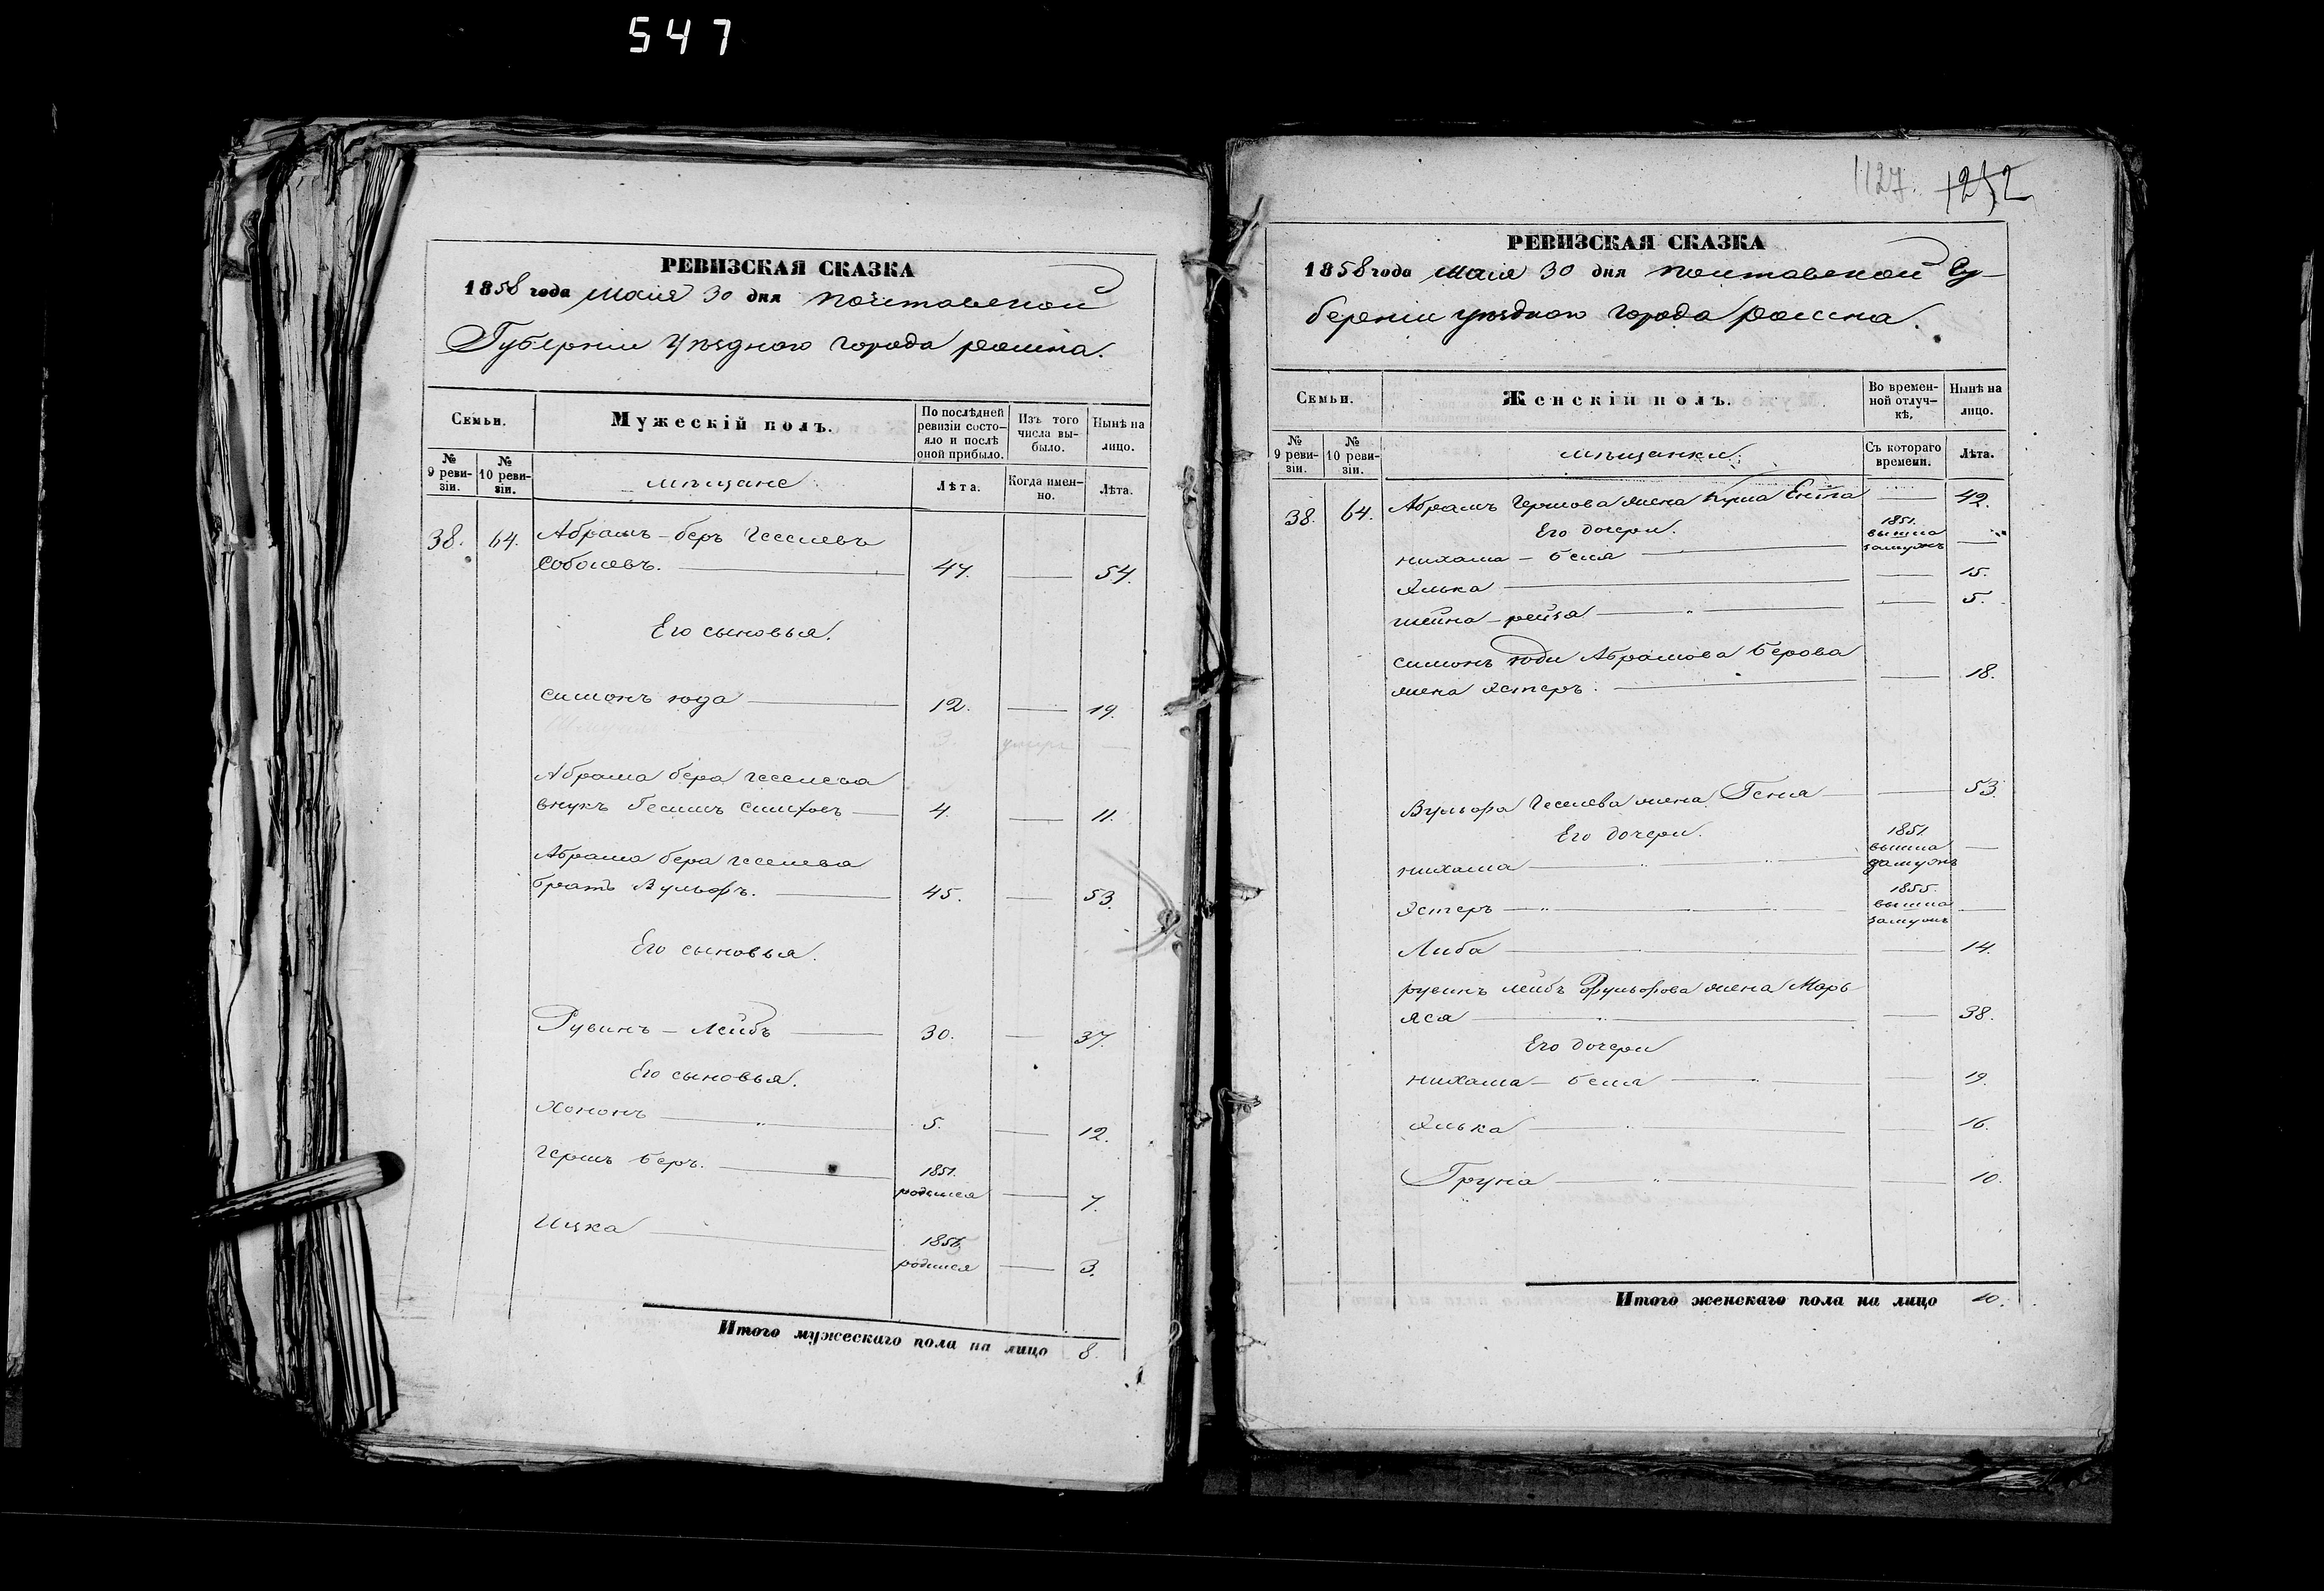 547
РЕВИЗСКАЯ СКАЗКА
1858 года маія 30 дня полтавской
Губерніи уѣзднаго города ромна.
Семьи.
Мужескій полъ.
По послѣдней ревизіи состояло и послѣ оной прибыло.
Изъ того числа выбыло.
Нынѣ на лицо.
№ 9 ревизіи.
№ 10 ревизіи.
мѣщане
Лѣта.
Когда именно.
Лѣта.
38. 64. Абрамъ-беръ
Соболевъ. 47. 54.
Его сыновья.
симонъ юда 12. 19.
3. умеръ
Абрама бера
внукъ 4. 11.
Абрама бера
братъ Вульфъ. 45. 53.
Его сыновья.
Рувинъ - Лейбъ 30. 37.
Его сыновья.
Хононъ 5. 12.
Гершъ беръ. 1851. родился 7.
Ицка родился 3.
Итого мужескаго пола на лицо 8.
1127. 1252
РЕВИЗСКАЯ СКАЗКА
1858 года маія 30 дня полтавской Гу-
берніи уѣзднаго города ромна.
Семьи.
Женскій полъ.
Во временной отлучкѣ.
Нынѣ на лицо.
№ 9 ревизіи.
№ 10 ревизіи.
мѣщанки.
Съ котораго времени.
Лѣта.
38. 64. Абрамъ жена 42.
Его дочери.
нихама - беля 1851. вышла замужъ
Элька 15.
шейна-рейза 5.
симонъ юды Абрамова берова
жена Эстеръ. 18.
Вульфа жена Геня 53.
Его дочери.
нихама 1851. вышла замужъ
Эстеръ 1855. вышла замужъ
Либа 14.
рувинъ лейбъ Вульфова жена Марь
яся 38.
Его дочери
нихама - беля 19.
Элька 16.
Груня 10.
Итого женскаго пола на лицо 10.